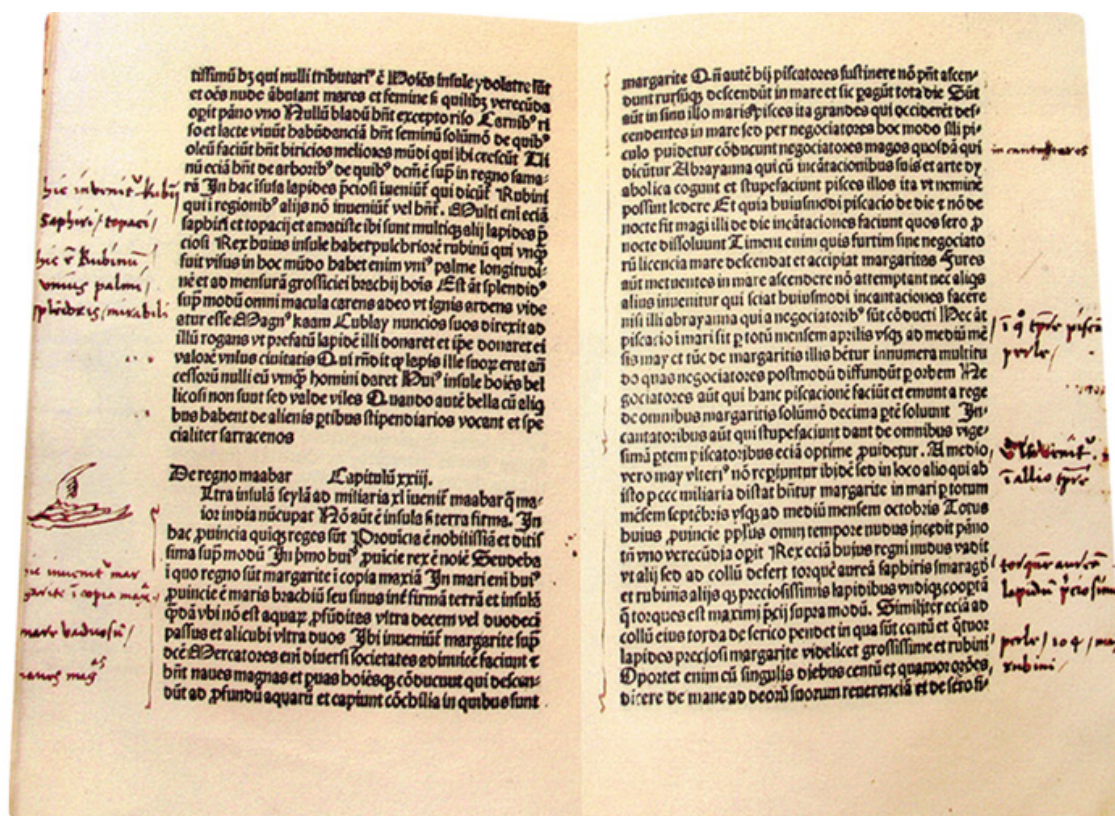 tissimū bʒ qui nulli tributariꝰ ē Hoīes insule ydolatre sūt
et oēs nude ābulant mares et femine sʒ quilibʒ verecūda
opit pāno vno Nullū bladū hn̄t excepto riso Carnibꝰ ri
so et lacte viuūt habūdanciā hn̄t seminū solūmō de quibꝰ
oleū faciūt hn̄t biricios meliores mūdi qui ibi crescūt Ui
nū eciā hn̄t de arboribꝰ de quibꝰ dcm̄ ē sup̄ in regno sama
rā In hac īsula lapides p̄ciosi īueniūt̉ qui dicūt̉ Rubini
qui ī regionibꝰ alijs nō inueniūt̉ vel hn̄t. Multi eni eciā
saphiri et topacij et amatiste ibi sunt multiqʒ alij lapides p̄
ciosi Rex huius insule habet pulchriorē rubinū qui vnqʒ
fuit visus in hoc mūdo habet enim vniꝰ palme longitudi
nē et ad mensurā grossiciei brachij hoīs Est āt splendidꝰ
sup̄ modū omni macula carens adeo vt ignis ardens vide
atur esse Magnꝰ kaam Cublay nuncios suos direxit ad
illū rogans vt prefatū lapidē illi donaret et ip̄e donaret ei
valorē vnius ciuitatis Qui rn̄dit qꝫ lapis ille suoꝝ erat an̄
cessorū nulli eū vmqʒ homini daret Huiꝰ insule hoīes bel
licosi non sunt sed valde viles Quando autē bella cū aliq
bus habent de alienis ꝑtibus stipendiarios vocant et spe
cialiter sarracenos
De regno maabar Capitulū xxiij.
Ultra insulā seylā ad miliaria xl īuenit̉ maabar q̄ ma
ior india nūcupat̉ Nō aūt ē insula sʒ terra firma. In
hac ꝓuincia quiqʒ reges sūt Prouīcia ē nobilissīa et ditis
sima sup̄ modū In p̄mo huiꝰ ꝓuīcie rex ē noīe Seudeba
ī quo regno sūt margarite ī copia maxīa In mari eni huiꝰ
ꝓuincie ē maris brachiū seu sinus int̉ firmā terrā et insulā
quādā vbi nō est aquaꝝ ꝓfūditas vltra decem vel duodecī
passus et alicubi vltra duos Ibi īueniūt̉ margarite sup̄
dcē Mercatores eni diuersi societates adinuicē faciunt ⁊
hn̄t naues magnas et puas hoīesqʒ cōducunt qui descen
dūt ad ꝓfundū aquarū et capiunt cōchilia in quibus sunt
hic invenit̉ Rubij
Saphiri / topaci /
hic ē Rubinū
vnius palmi /
mirabili
mare vaduosū /
margarite Qn̄ autē hij piscatores sustinere nō pn̄t ascen⸗
dunt rursūqʒ descendūt in mare et sic ꝑagūt tota die Sūt
aūt in sinu illo maris pisces ita grandes qui occiderēt des⸗
cendentes in mare sed per negociatores hoc modo illi pi⸗
culo ꝓuidetur cōducunt negociatores magos quosdā qui
dicūtur Abrayanna qui cū incātacionibus suis et arte dy
abolica cogunt et stupefaciunt pisces illos ita vt neminē
possunt ledere Et quia huiusmodi piscacio de die ⁊ nō de
nocte fit magi illi de die incātaciones faciunt quos sero ꝓ
nocte dissoluunt Timent enim quis furtim sine negociato
rū licencia mare descendat et accipiat margaritas Fures
aūt metuentes in mare ascendere nō attemptant nec aliqs
alius inuenitur qui sciat huiusmodi incantaciones facere
nisi illi abrayanna qui a negociatoribꝰ sūt cōducti Hec āt
piscacio ī mari fit ꝑ totū mensem aprilis vsqʒ ad mediū mē
sis may et tūc de margaritis illis hētur innumera multitu
do quas negociatores postmodū diffundūt ꝑ orbem Ne
gociatores aūt qui hanc piscacionē faciūt et emunt a rege
de omnibus margaritis solūmō decima ꝑtē soluunt In⸗
cantatoribus aūt qui stupefaciunt dant de omnibus vige⸗
simā ꝑtem piscatoribus eciā optime ꝓuidetur. A medio
vero may vlteriꝰ nō rep̄iuntur ibidē sed in loco alio qui ab
isto p ccc miliaria distat hn̄tur margarite in mari ꝑ totum
mēsem septēbris vsqʒ ad mediū mensem octobris Totus
huius ꝓuincie pplus omni tempore nudus incedit pāno
tn̄ vno verecūdia opit Rex eciā hujus regni nudus vadit
vt alij sed ad collū defert torquē aureā saphiris smaragd
et rubinis alijs qʒ preciosissimis lapidibus vndiqʒ cooptā
q̄ torques est maximi p̄cij supra modū. Similiter eciā ad
collū eius torda de serico pendet in qua sūt cētū et q̄tuor
lapides preciosi margarite videlicet grossissime et rubini
Oportet enim eū singulis diebus centū et quatuor orōes
dicere de mane ad deorū suorum reuerenciā et de sero si⸗
incantatores
ī qͦ tp̄re piscāt̉
perle /
ī allio tp̄re
torquē aureā
lapidū p̄ciosim
perle / 104 / ma
rubini /